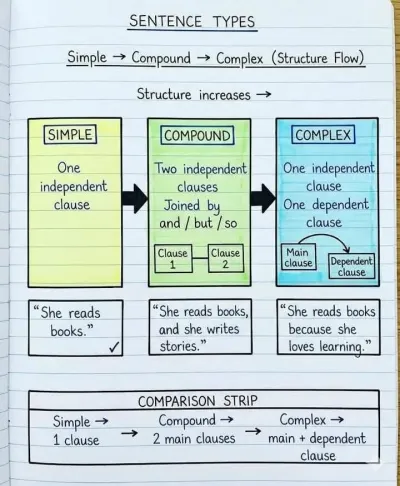 SENTENCE TYPES
Simple → Compound → Complex (Structure Flow)
Structure increases →
SIMPLE
One
independent
clause
COMPOUND
Two independent
clauses
Joined by
and / but / so
Clause
1
Clause
2
COMPLEX
One independent
clause
One dependent
clause
Main
clause
Dependent
clause
"She reads
books."
✓
"She reads books,
and she writes
stories."
"She reads books
because she
loves learning."
COMPARISON STRIP
Simple →
1 clause
→
Compound →
2 main clauses
→
Complex →
main + dependent
clause